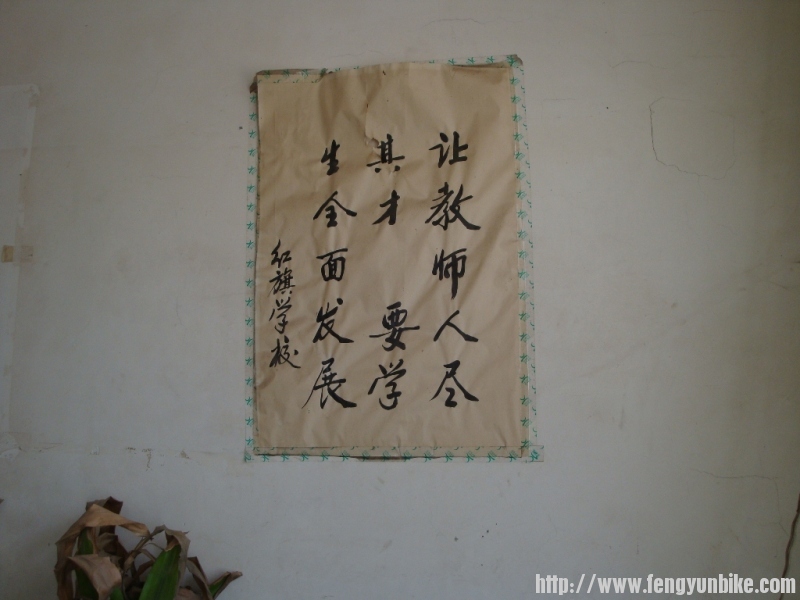 让教师人尽
其才 要学
生全面发展
红旗学校
http://www.fengyunbike.com